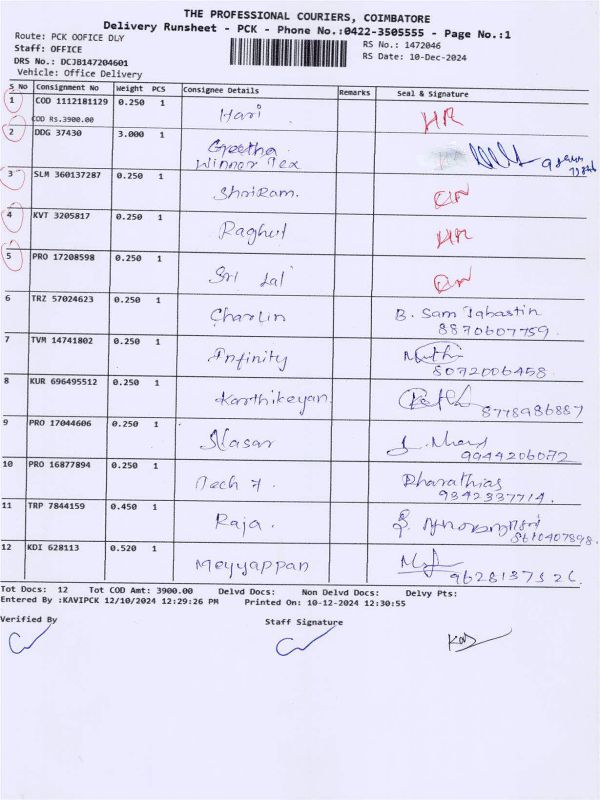 THE PROFESSIONAL COURIERS, COIMBATORE
Delivery Runsheet - PCK - Phone No.:0422-3505555 - Page No.:1
Route: PCK OOFICE DLY
RS No.: 1472046
Staff: OFFICE
RS Date: 10-Dec-2024
DRS No.: DCJB147204601
Vehicle: Office Delivery
S No Consignment No Weight PCS Consignee Details Remarks Seal & Signature
1 COD 1112181129 0.250 1 Hari HR
COD Rs.3900.00
2 DDG 37430 3.000 1 Greetha
Winner Tex
3 SLM 360137287 0.250 1 ShriRam.
4 KVT 3205817 0.250 1 Raghul HR
5 PRO 17208598 0.250 1 Sri Lal
6 TRZ 57024623 0.250 1 Charlin B. Sam
8870607759
7 TVM 14741802 0.250 1 Infinity
8072006458
8 KUR 696495512 0.250 1 Karthikeyan
8778986887
9 PRO 17044606 0.250 1 Nasar
9944206072
10 PRO 16877894 0.250 1 Tech 7 Bharathias
9342337714
11 TRP 7844159 0.450 1 Raja.
8610407898
12 KDI 628113 0.520 1 Meyyappan
Tot Docs: 12 Tot COD Amt: 3900.00 Delvd Docs: Non Delvd Docs: Delvy Pts:
Entered By :KAVIPCK 12/10/2024 12:29:26 PM Printed On: 10-12-2024 12:30:55
Verified By Staff Signature